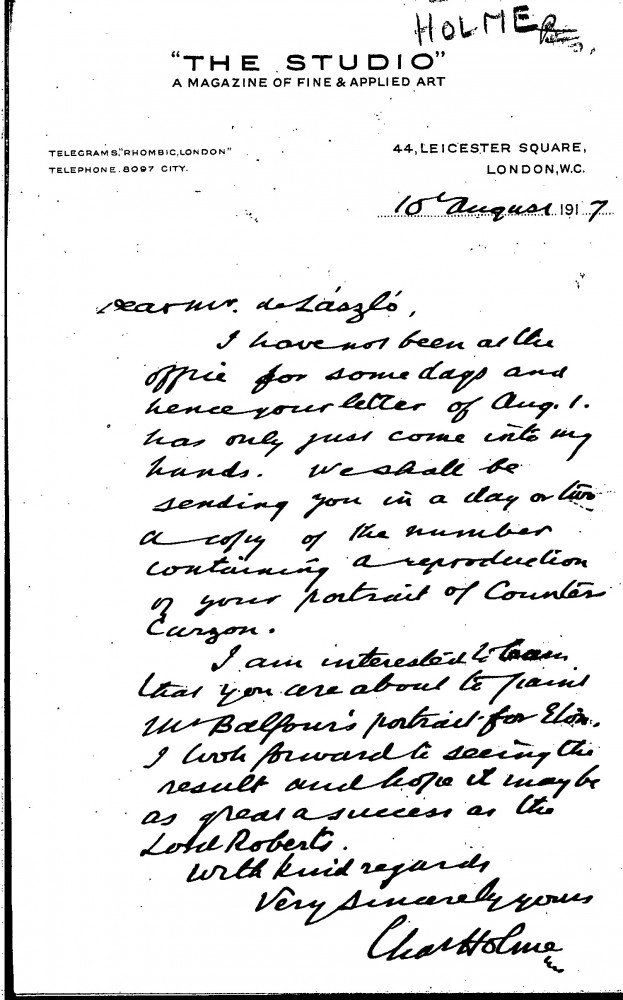 HOLME
"THE STUDIO"
A MAGAZINE OF FINE & APPLIED ART
TELEGRAMS, "RHOMBIC, LONDON"
TELEPHONE. 8097 CITY.
44, LEICESTER SQUARE,
LONDON, W.C.
10th August 1917
Dear Mr. de László,
I have not been at the
office for some days and
hence your letter of Aug. 1.
has only just come into my
hands. We shall be
sending you in a day or two
a copy of the number
containing a reproduction
of your portrait of Countess
Curzon.
I am interested to learn
that you are about to paint
Mr Balfour's portrait for Eton.
I look forward to seeing the
result and hope it may be
as great a success as the
Lord Roberts.
With kind regards
Very Sincerely yours
Chas Holme